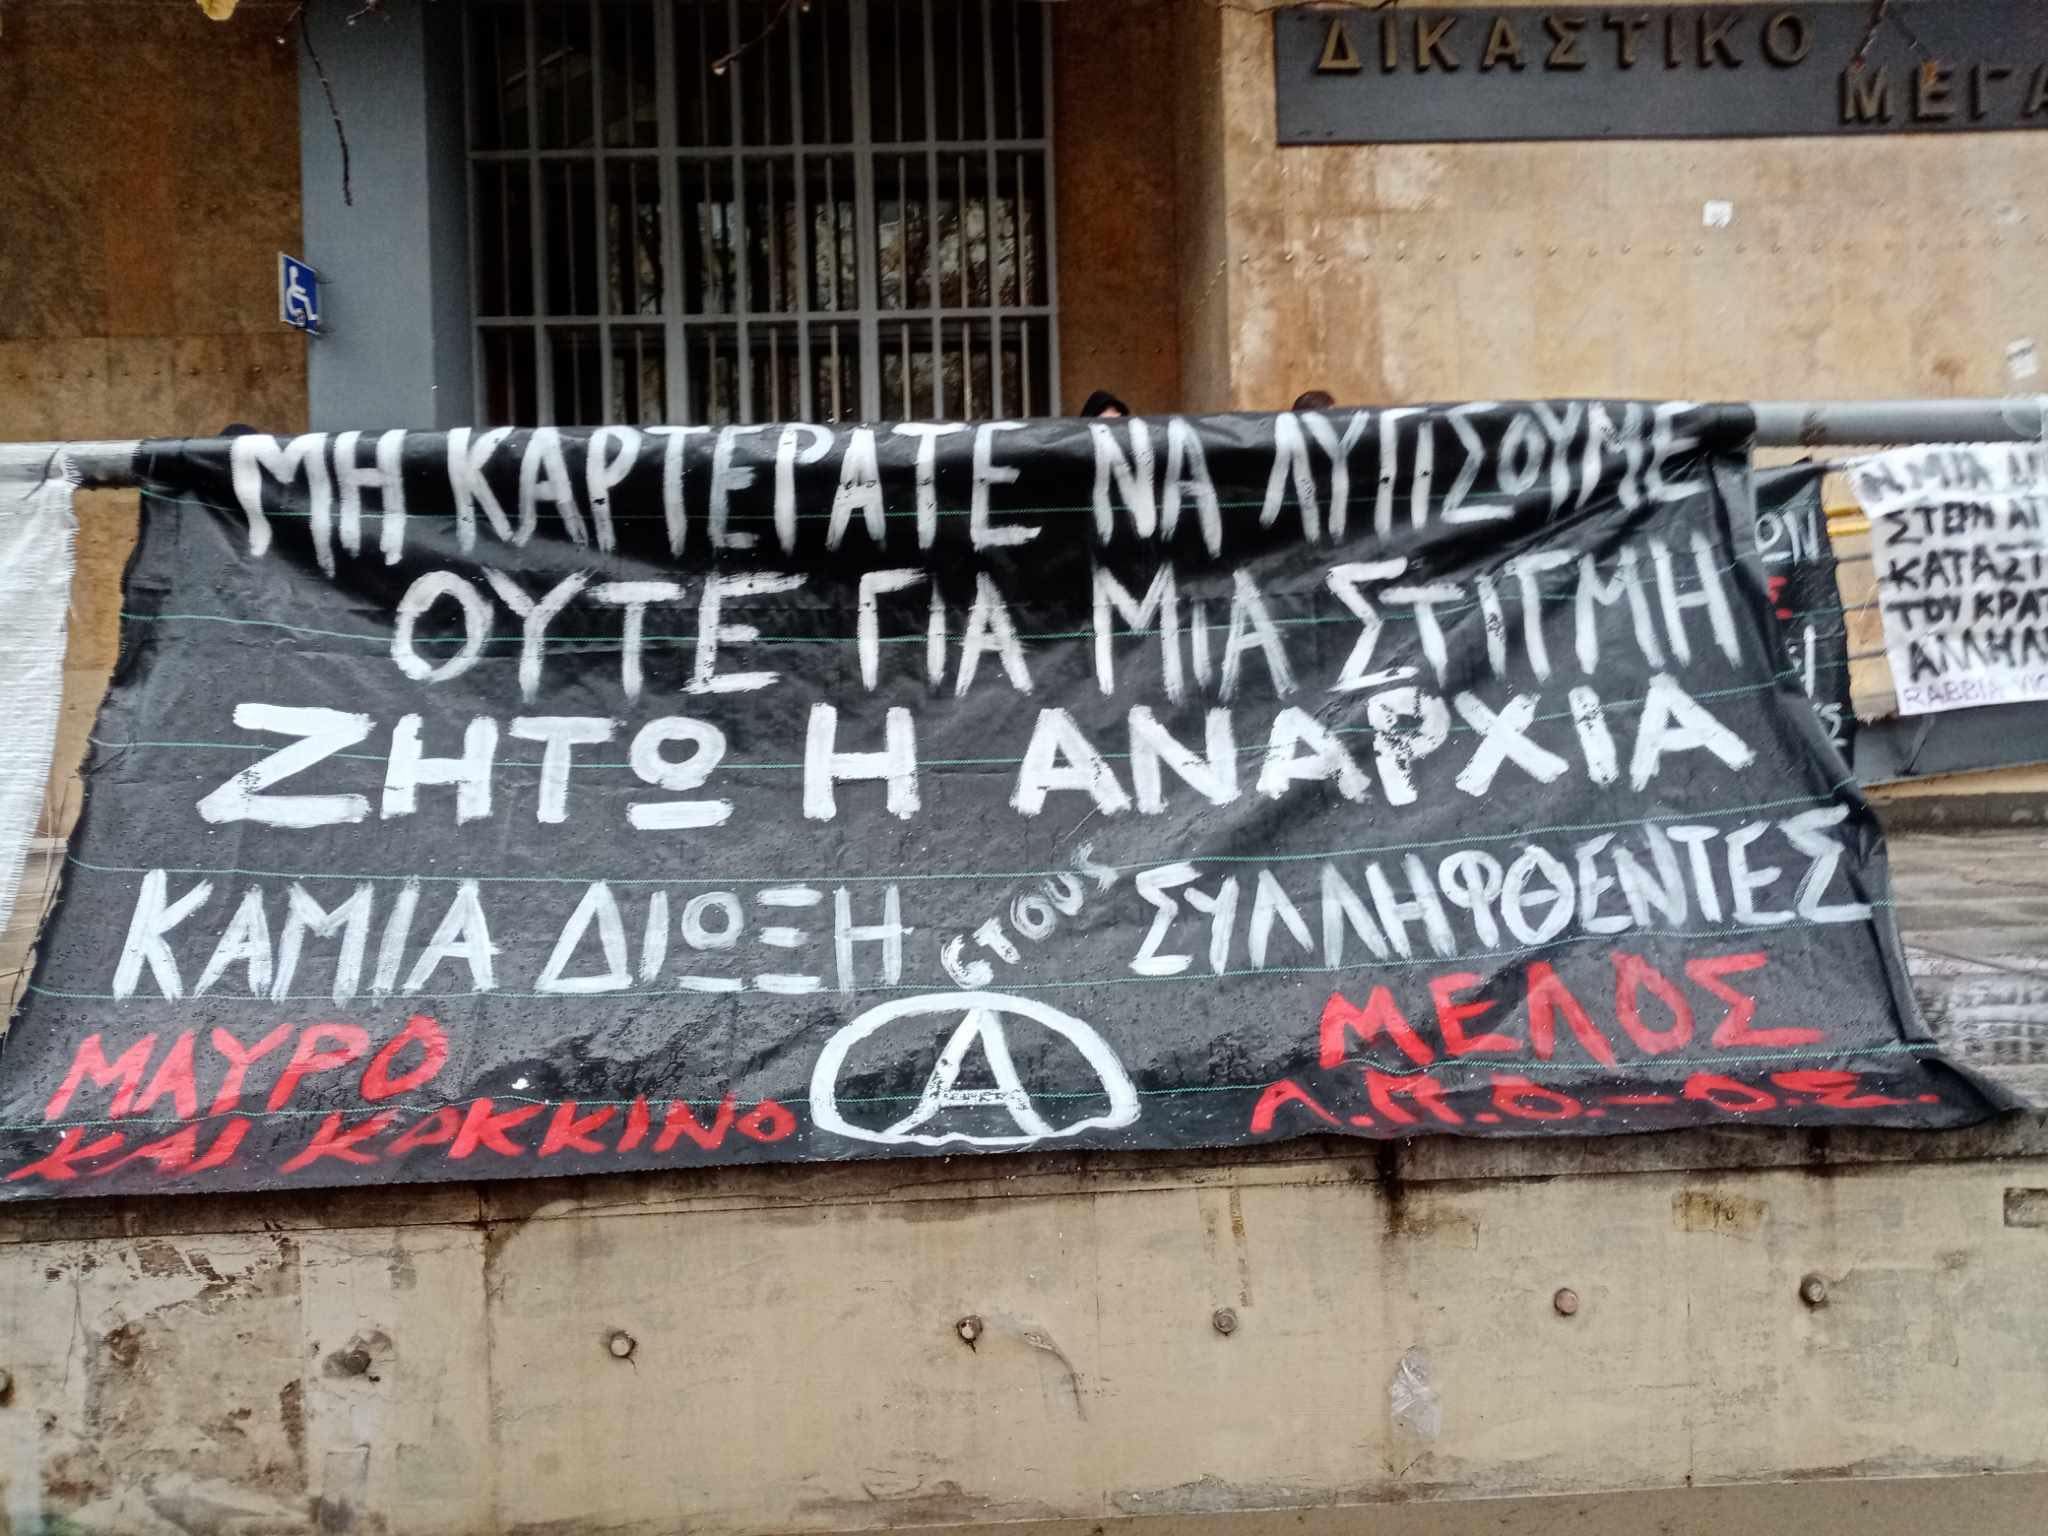 ΔΙΚΑΣΤΙΚΟ
ΜΕΓΑ
ΜΗ ΚΑΡΤΕΡΑΤΕ ΝΑ ΛΥΓΙΣΟΥΜΕ
ΟΥΤΕ ΓΙΑ ΜΙΑ ΣΤΙΓΜΗ
ΖΗΤΩ Η ΑΝΑΡΧΙΑ
ΚΑΜΙΑ ΔΙΩΞΗ στους ΣΥΛΛΗΦΘΕΝΤΕΣ
ΜΑΥΡΟ
ΚΑΙ ΚΟΚΚΙΝΟ
Α
ΜΕΛΟΣ
Α.Π.Ο.-Ο.Σ.
ΚΑΤΑΣΤ
ΤΟΥ ΚΡΑΤ
ΑΛΛΗΛ
RABBIA